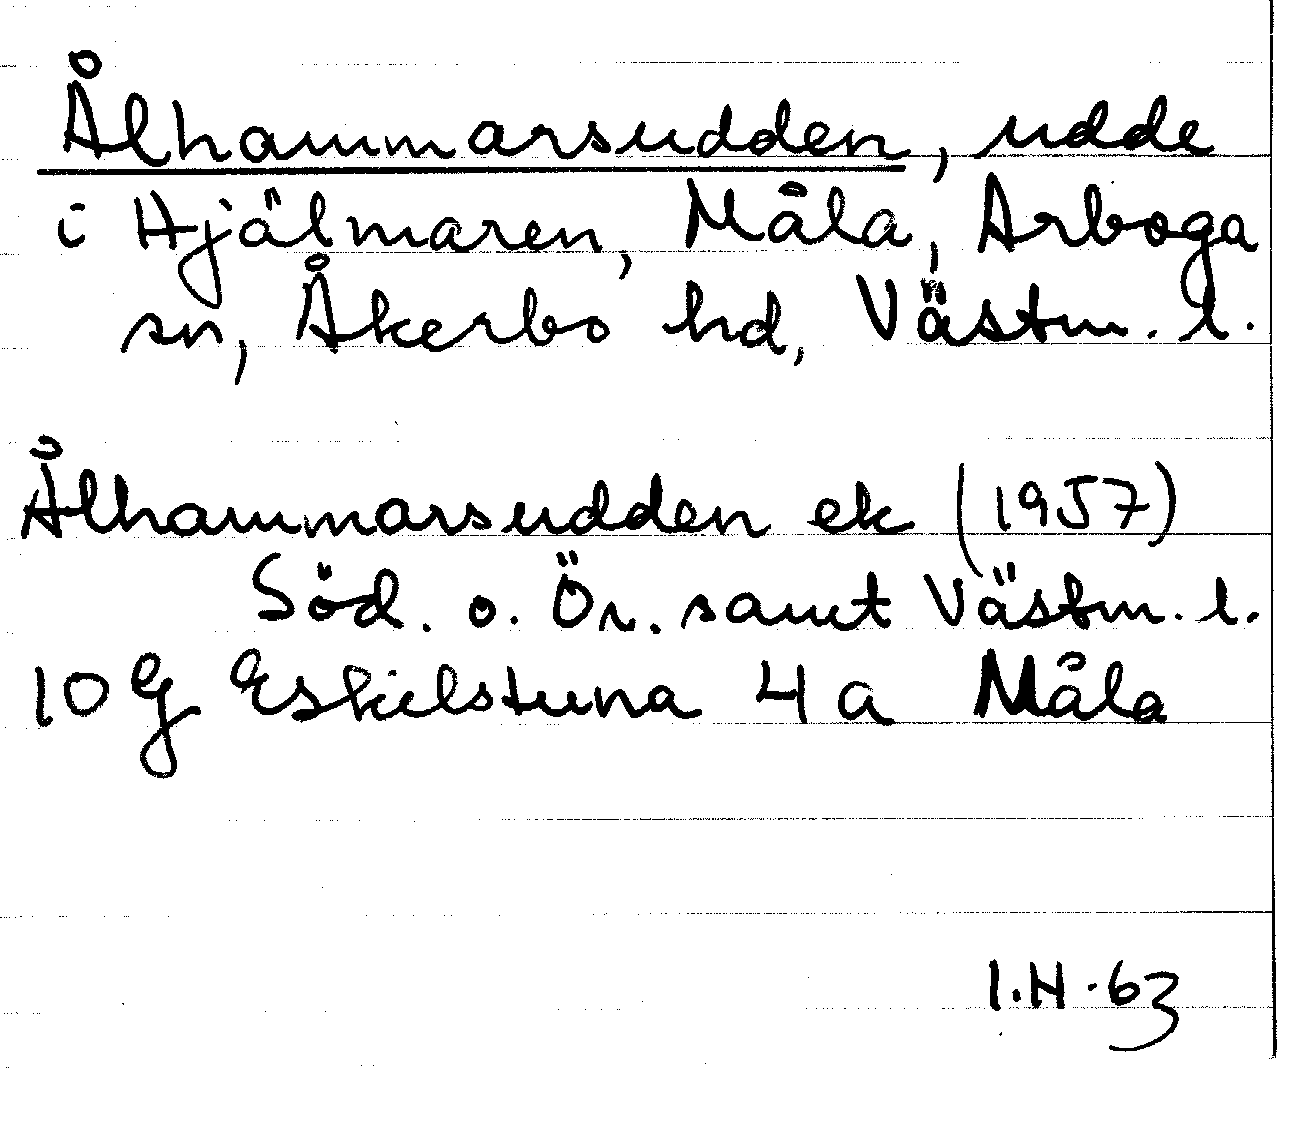 Ålhammarsudden, udde
i Hjälmaren, Måla, Arboga
sn, Åkerbo hd, Västm. l.
Ålhammarsudden ek (1957)
Söd. o. Ör. samt Västm. l.
10 g Eskilstuna 4 a Måla
I.H.63